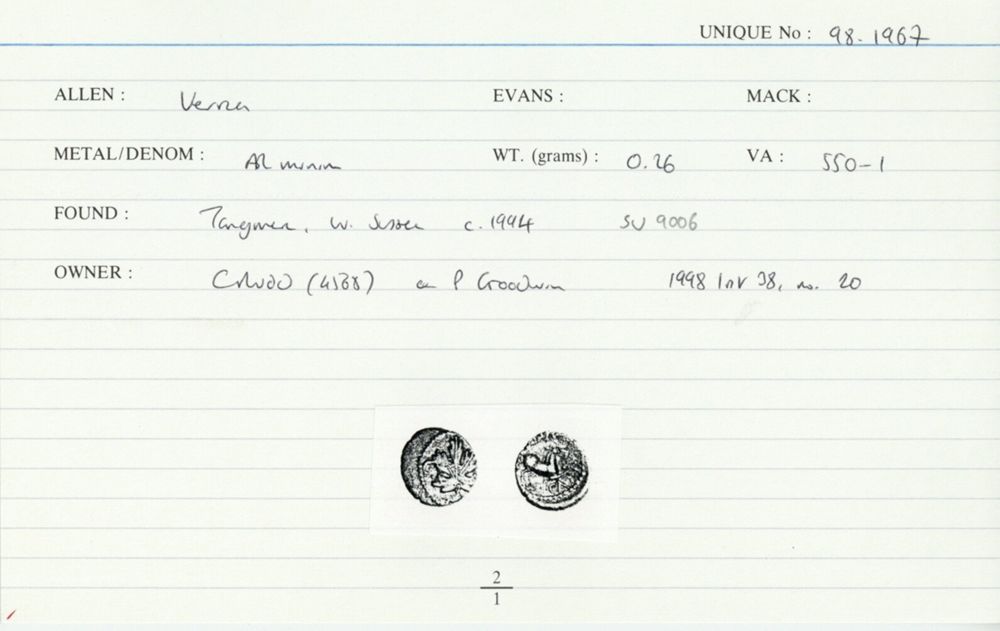 UNIQUE No : 98-1967
ALLEN : Verica EVANS : MACK :
METAL/DENOM : AR minim WT. (grams) : 0.26 VA : 550-1
FOUND : Tangmere, W. Sussex c. 1994 SU 9006
OWNER : P Goodwin 1998 Inv 38, no. 20
2
1